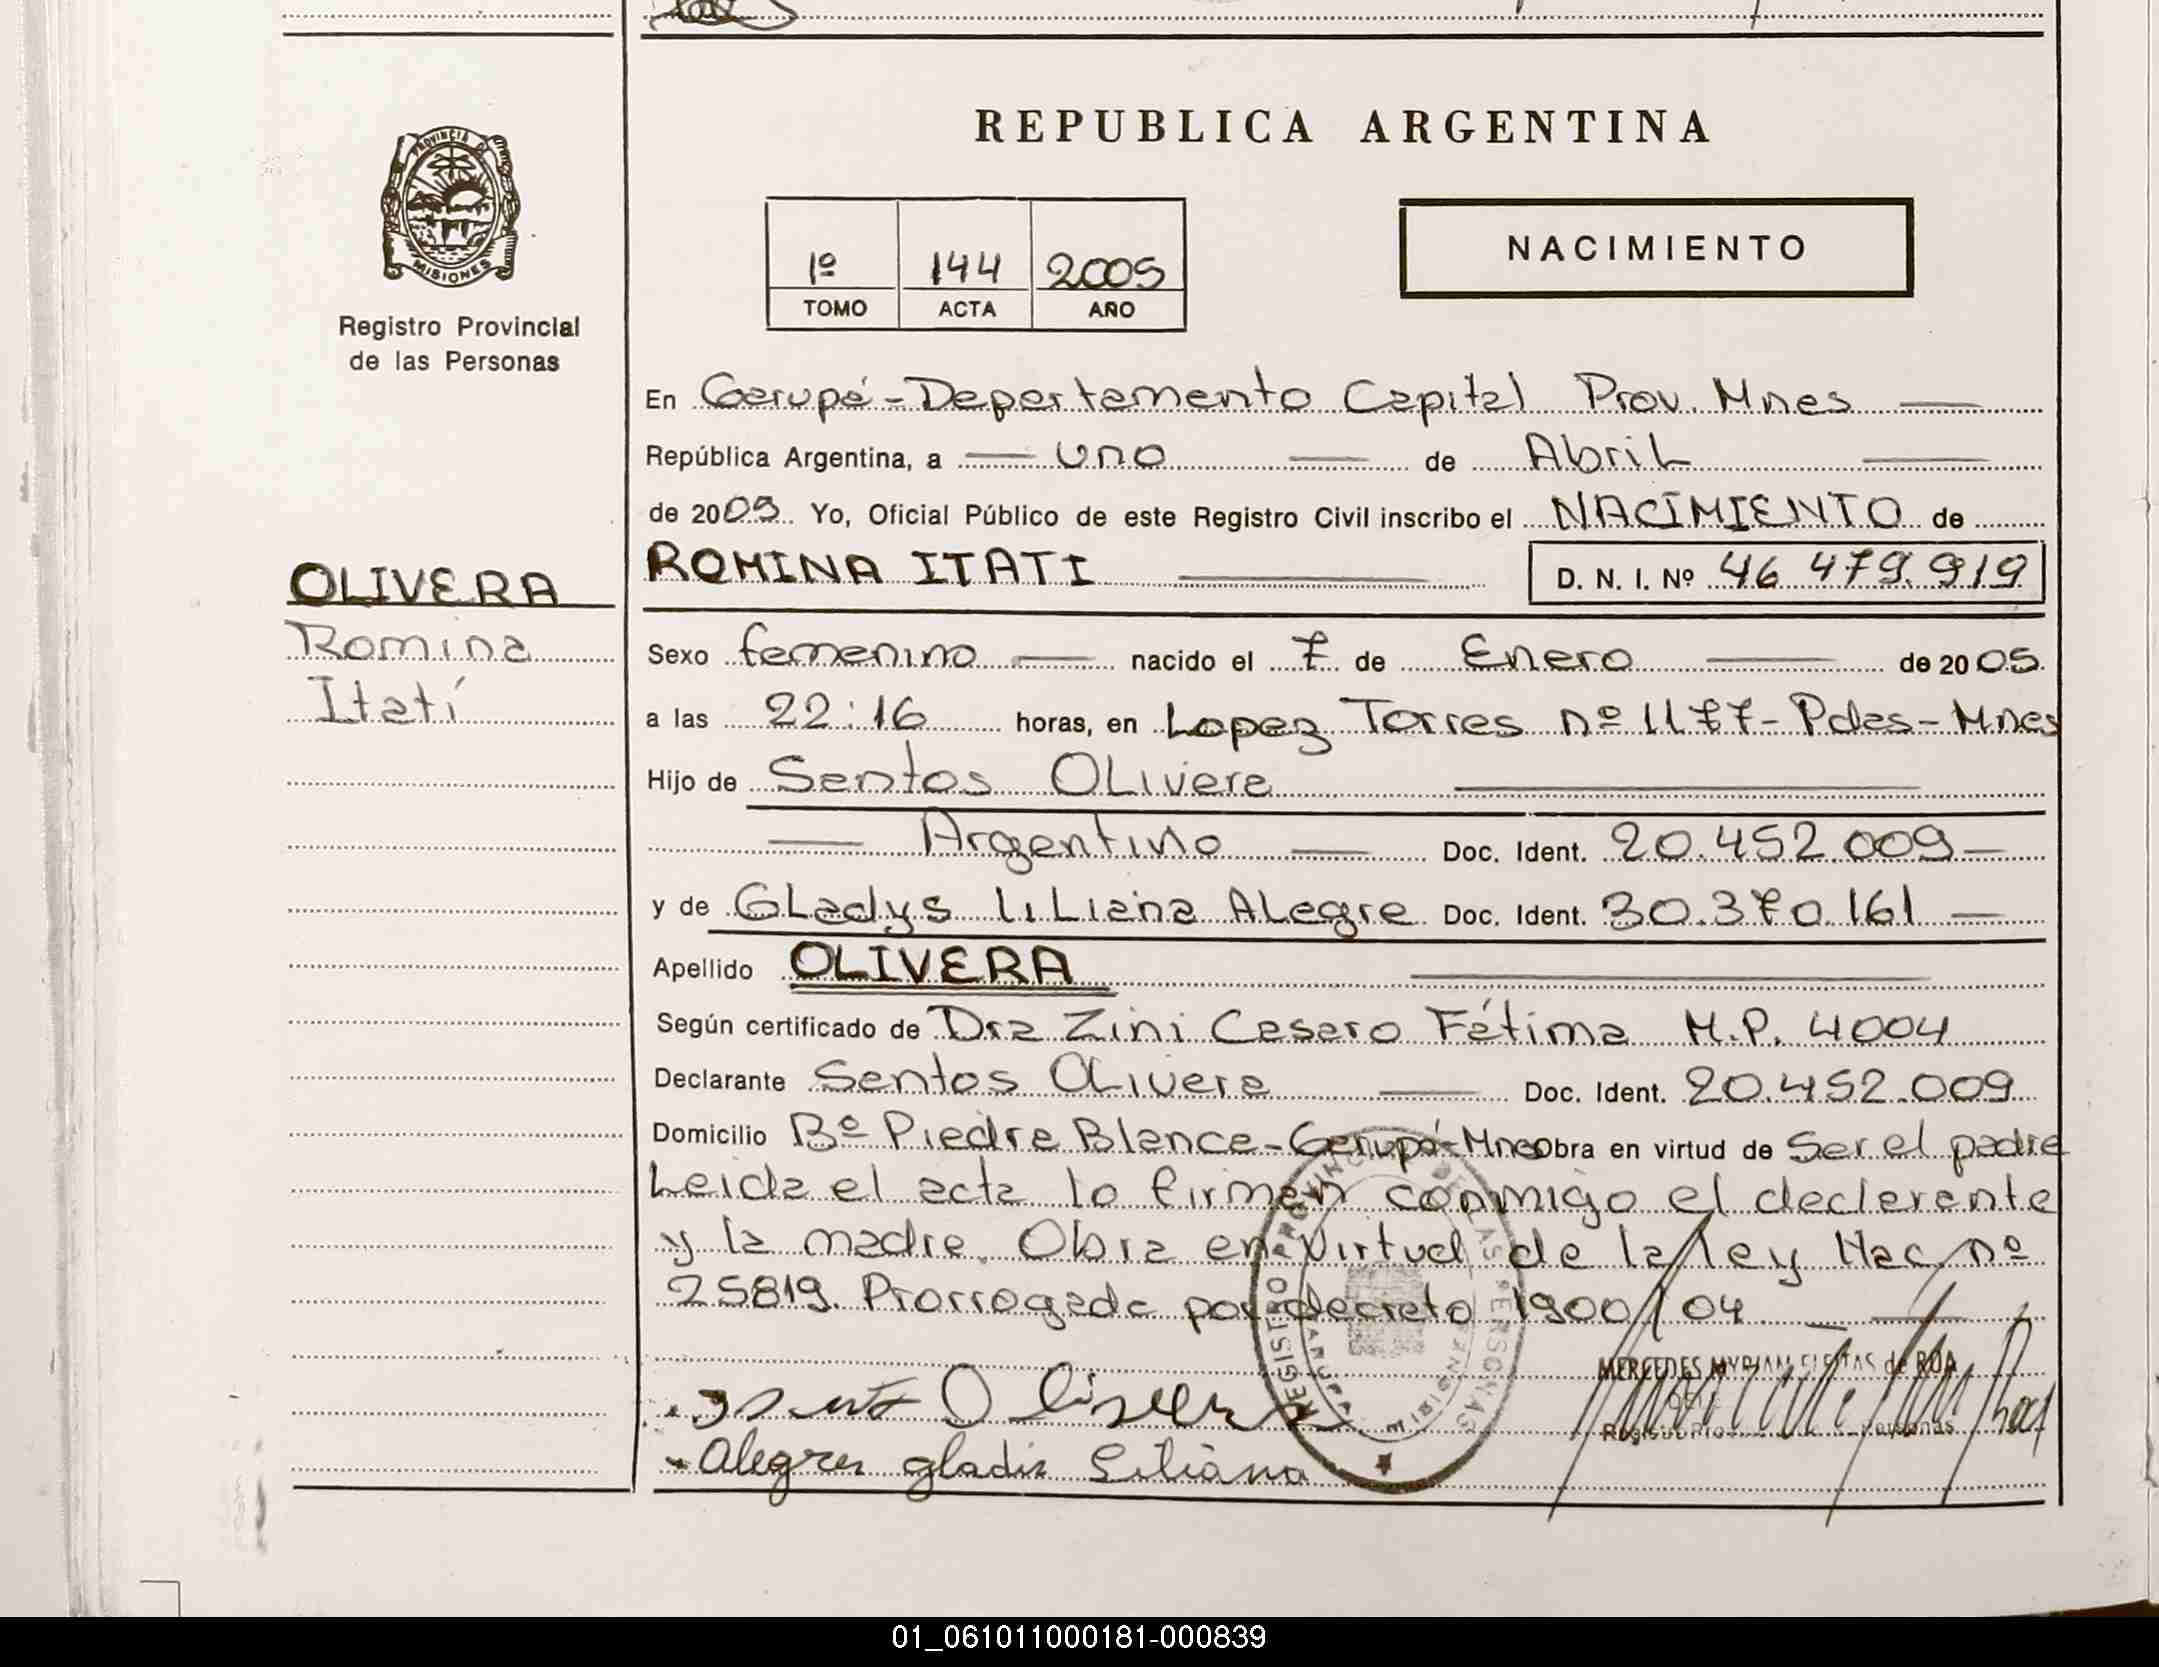 REPUBLICA ARGENTINA
PROVINCIA DE
MISIONES
Registro Provincial
de las Personas
1º 144 2005
TOMO ACTA AÑO
NACIMIENTO
En Garupá - Departamento Capital Prov. Mnes
República Argentina, a uno de Abril
de 2005 Yo, Oficial Público de este Registro Civil inscribo el NACIMIENTO de
ROMINA ITATI D. N. I. Nº 46 479.919
OLIVERA
Romina
Itatí
Sexo femenino nacido el 7 de Enero de 2005
a las 22:16 horas, en Lopez Torres nº 1177 - Pdas - Mnes
Hijo de Santos Olivera
Argentino Doc. Ident. 20.452.009
y de Gladys Liliana Alegre Doc. Ident. 30.370.161
Apellido OLIVERA
Según certificado de Dra Zini Casaro Fátima M.P. 4004
Declarante Santos Olivera Doc. Ident. 20.452.009
Domicilio Bº Piedra Blanca - Garupá - Mnes Obra en virtud de Ser el padre
Leida el acta lo firman conmigo el declarante
y la madre. Obra en virtud de la ley Nac nº
25819. Prorrogada por decreto 1900/04
MERCEDES MYRIAM FLEITAS de ROA
Olivera
Alegre gladis Liliana
REGISTRO PROVINCIAL DE LAS PERSONAS
01_061011000181-000839